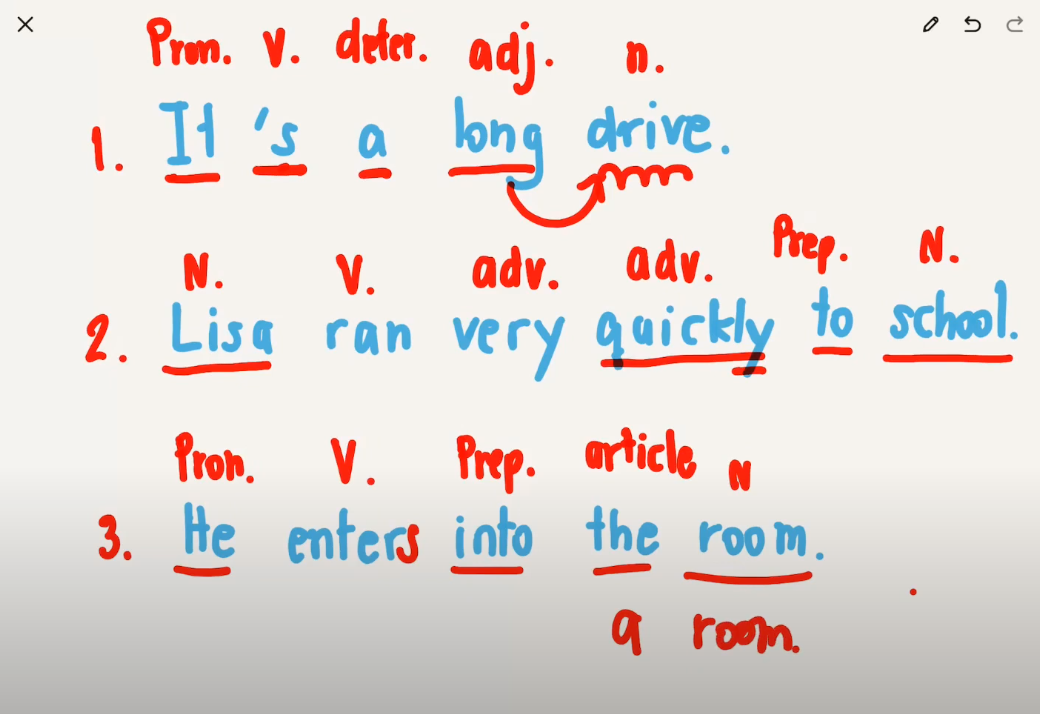 Pron. V. deter. adj. n.
1. It 's a long drive.
N. V. adv. adv. Prep. N.
2. Lisa ran very quickly to school.
Pron. V. Prep. article N
3. He enters into the room.
a room.